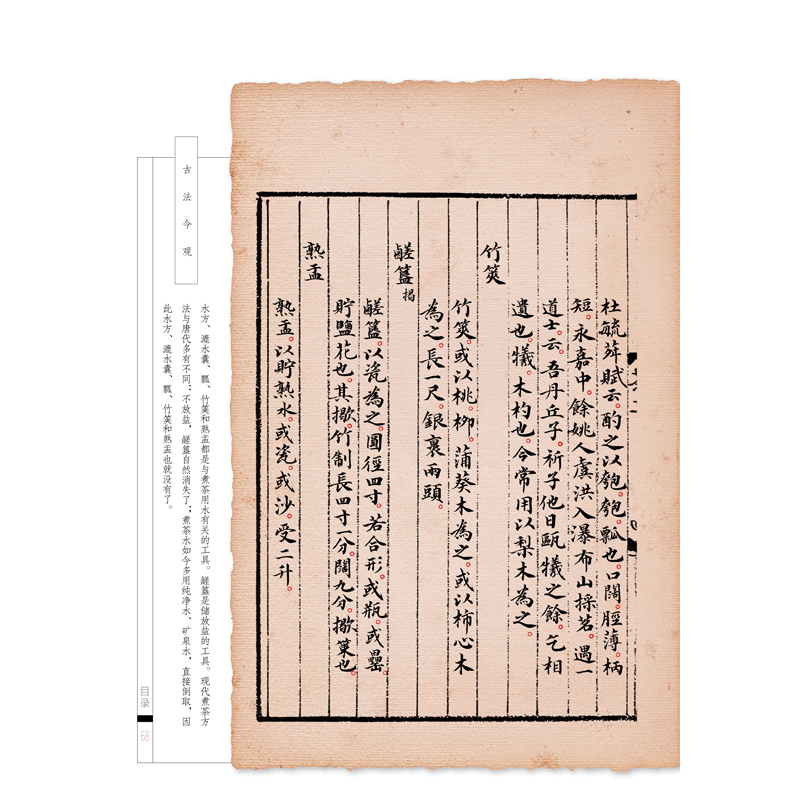 杜毓荈賦云。酌之以匏。匏。瓢也。口闊。脛薄。柄
短。永嘉中。餘姚人虞洪入瀑布山採茗。遇一
道士。云。吾丹丘子。祈子他日甌犧之餘。乞相
遺也。犧。木杓也。今常用以梨木為之。
竹筴
竹筴。或以桃。柳。蒲葵木為之。或以柿心木
為之。長一尺。銀裹兩頭。
鹺簋揭
鹺簋。以瓷為之。圓徑四寸。若合形。或瓶。或罍。
貯鹽花也。其撇。竹制長四寸一分。闊九分。撇。策也。
熟盂
熟盂。以貯熟水。或瓷。或沙。受二升。
古法今观
水方、漉水囊、瓢、竹筴和熟盂都是与煮茶用水有关的工具。鹾簋是储放盐的工具。现代煮茶方
法与唐代多有不同：不放盐，鹾簋自然消失了；煮茶水如今多用纯净水、矿泉水，直接倒取，因
此水方、漉水囊、瓢、竹筴和熟盂也就没有了。
目录
68